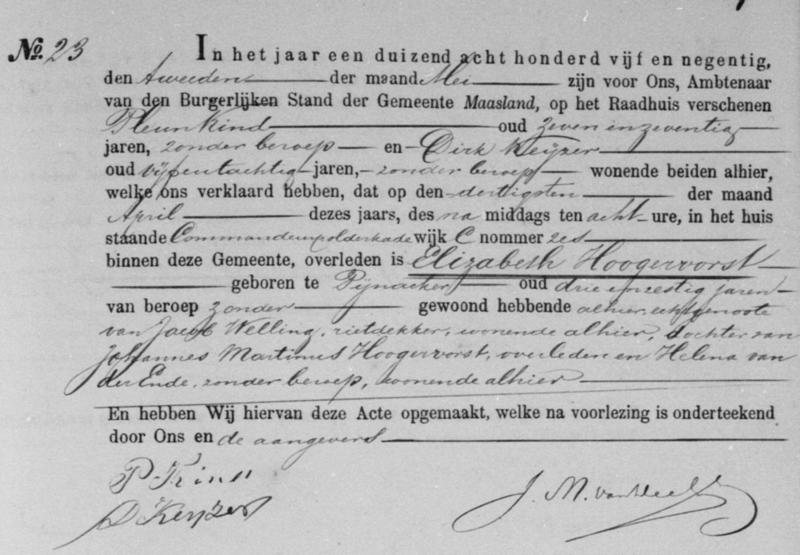 No. 23 In het jaar een duizend acht honderd vijf en negentig,
den tweeden der maand Mei zijn voor Ons, Ambtenaar
van den Burgerlijken Stand der Gemeente Maasland, op het Raadhuis verschenen
Pleun Kind oud zeven en zeventig
jaren, zonder beroep en Dirk Keijzer
oud vijfentachtig jaren, zonder beroep wonende beiden alhier,
welke ons verklaard hebben, dat op den dertigsten der maand
April dezes jaars, des na middags ten acht ure, in het huis
staande Commandeurspolderkade wijk C nommer zes
binnen deze Gemeente, overleden is Elizabeth Hoogervorst
geboren te Pijnacker oud drie en zestig jaren
van beroep zonder gewoond hebbende alhier, echtgenoote
van Jacob Welling, rietdekker, wonende alhier, dochter van
Johannes Martinus Hoogervorst, overleden en Helena van
der Ende, zonder beroep, wonende alhier
En hebben Wij hiervan deze Acte opgemaakt, welke na voorlezing is onderteekend
door Ons en de aangevers
P. Kind
D Keyzer
J. M. van